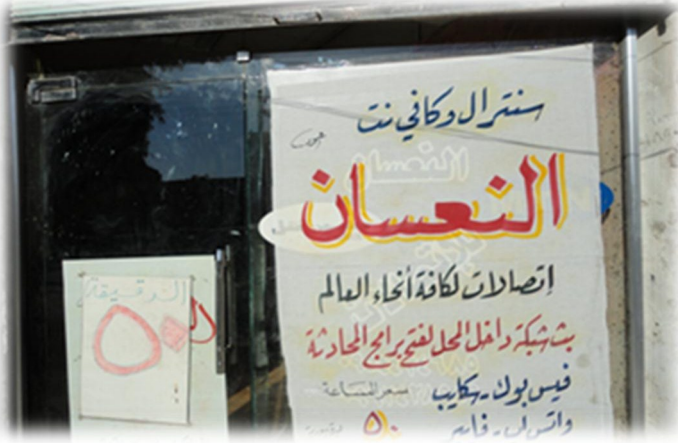 سنترال وكافي نت
النعسان
إتصالات لكافة أنحاء العالم
بث شبكة داخل المحل لفتح برامج المحادثة
فيس بوك - سكايب
سعر الساعة
واتس اب - فايبر
٥٠
الدقيقة
٥٠